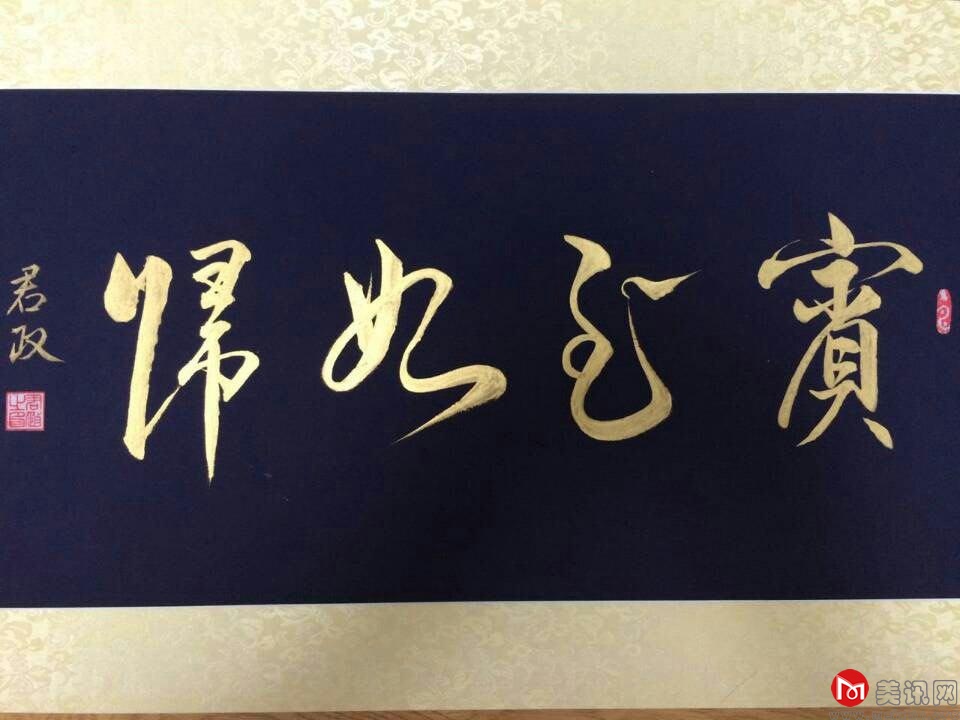 賓至如歸
君政
美讯网